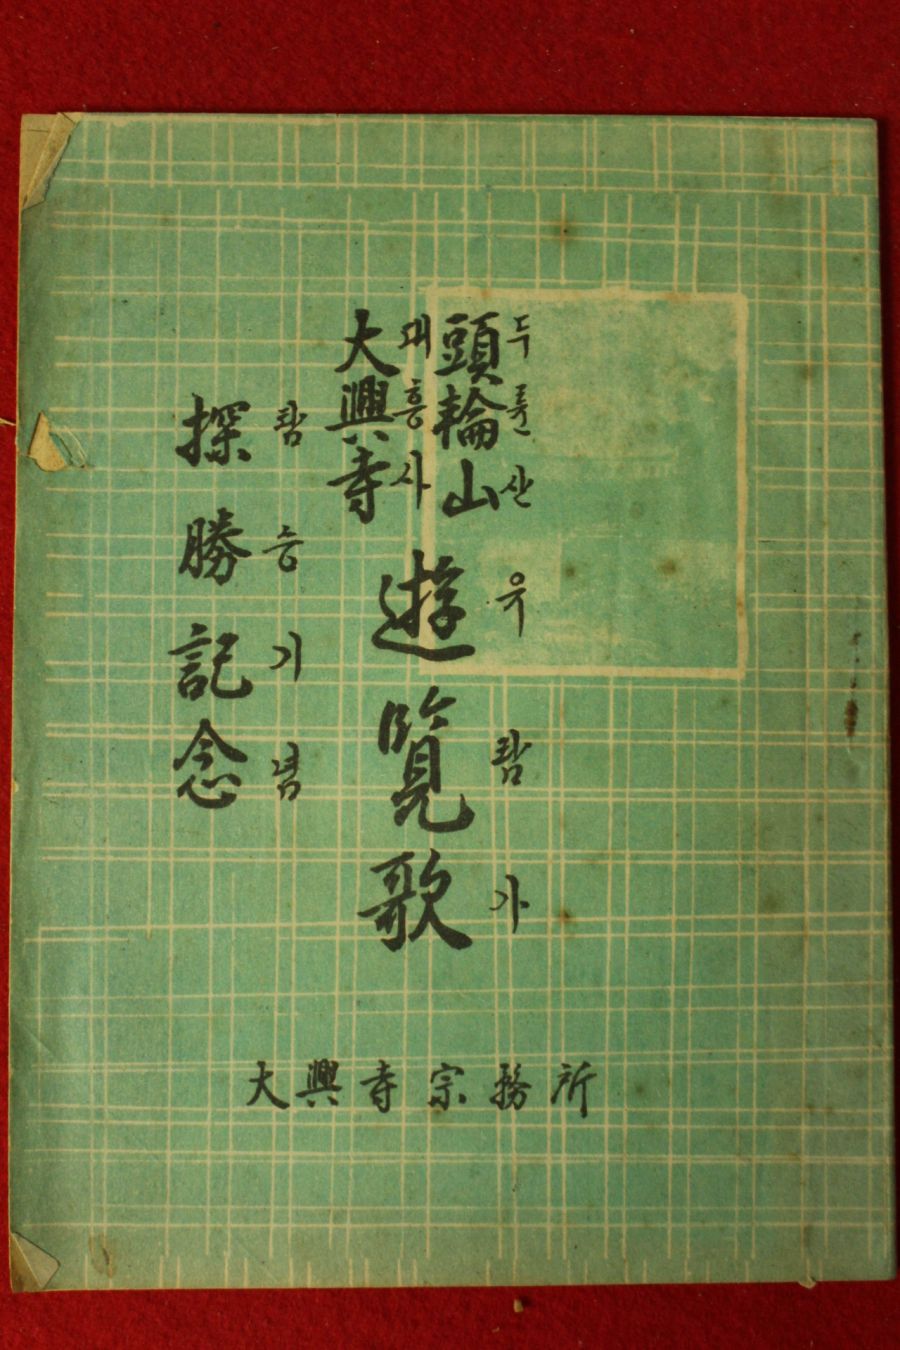 頭輪山
두륜산
大興寺
대흥사
遊覽歌
유람가
探勝記念
탐승기념
大興寺宗務所